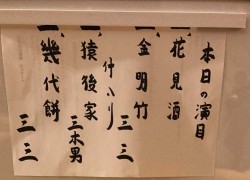 本日の演目
一、花見酒
一、金明竹 三三
仲入り
一、猿後家 三木男
一、幾代餅 三三